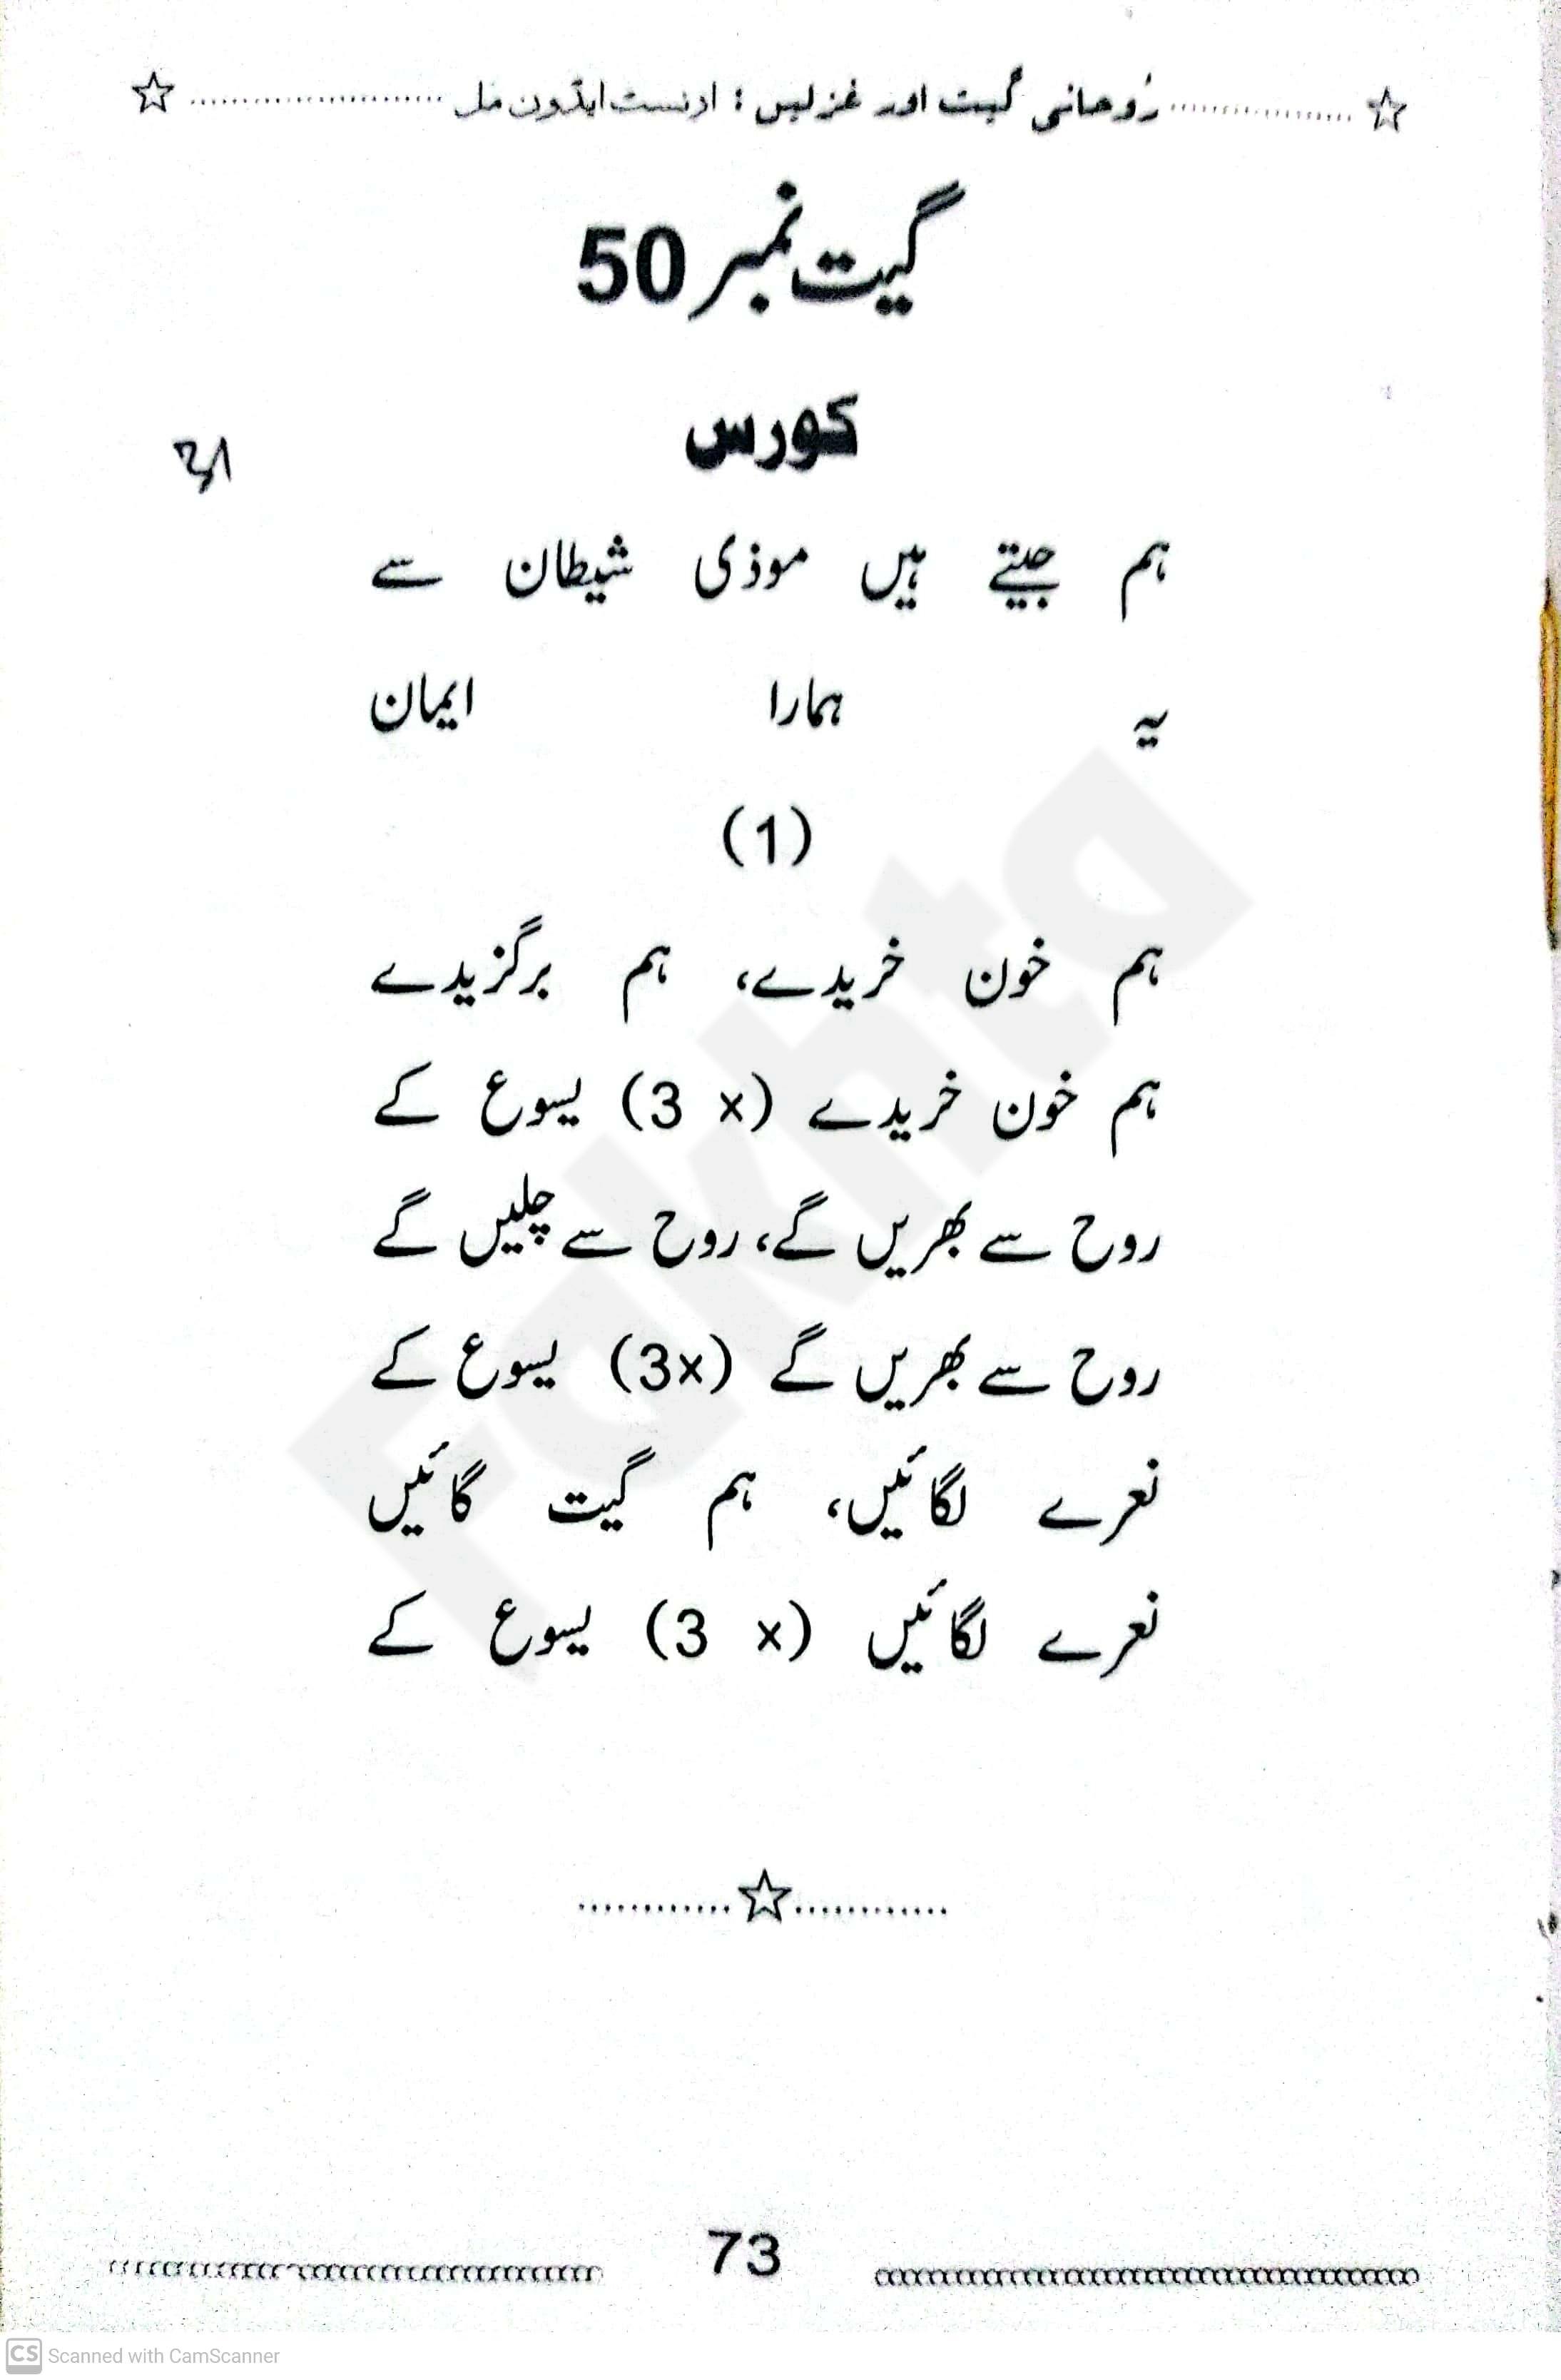 رُوحانی گیت اور غزلیں : ارنسٹ ایڈون مل
گیت نمبر 50
کورس
ہم جیتے ہیں موذی شیطان سے
یہ ہمارا ایمان
(1)
ہم خون خریدے، ہم برگزیدے
ہم خون خریدے (x 3) یسوع کے
روح سے بھریں گے، روح سے چلیں گے
روح سے بھریں گے (3x) یسوع کے
نعرے لگائیں، ہم گیت گائیں
نعرے لگائیں (x 3) یسوع کے
73
Fakhta
CS Scanned with CamScanner